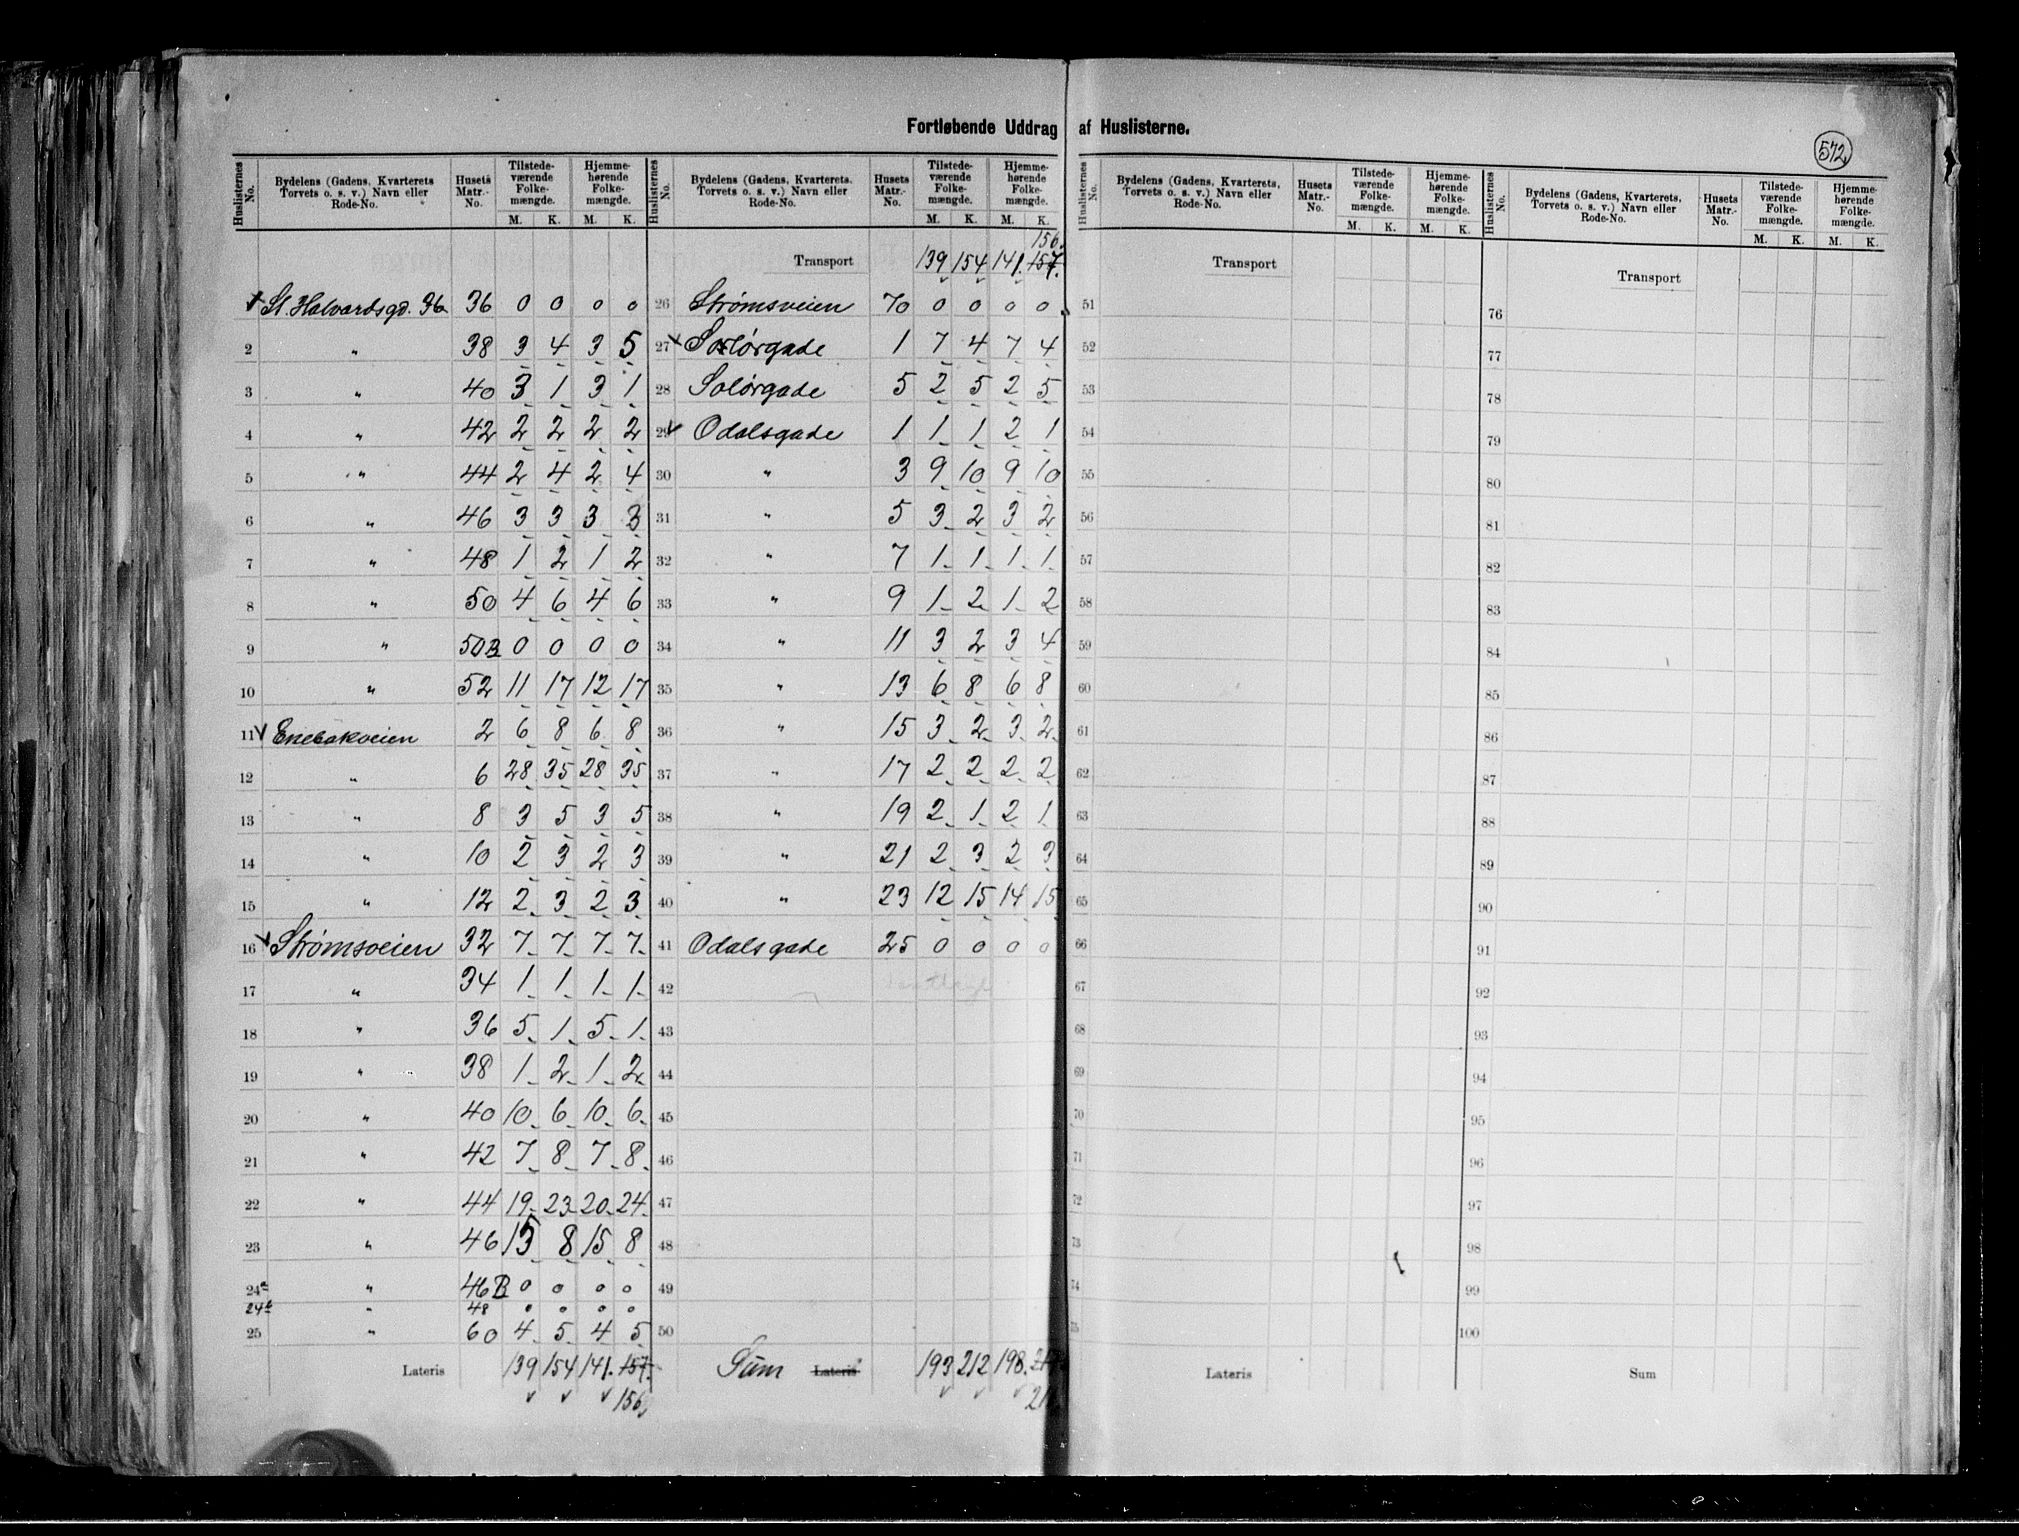 Fortløbende Uddrag af Huslisterne.
572
Huslisternes No. | Bydelens (Gadens, Kvarterets Torvets o. s. v.) Navn eller Rode-No. | Husets Matr.-No. | Tilstedeværende Folkemængde. M. K. | Hjemmehørende Folkemængde. M. K.
St. Halvardsgd. 36 36 0 0 0 0
2 " 38 3 4 3 5
3 " 40 3 1 3 1
4 " 42 2 2 2 2
5 " 44 2 4 2 4
6 " 46 3 3 3 3
7 " 48 1 2 1 2
8 " 50 4 6 4 6
9 " 50B 0 0 0 0
10 " 52 11 17 12 17
11 Enebakveien 2 6 8 6 8
12 " 6 28 35 28 35
13 " 8 3 5 3 5
14 " 10 2 3 2 3
15 " 12 2 3 2 3
16 Strømsveien 32 7 7 7 7
17 " 34 1 1 1 1
18 " 36 5 1 5 1
19 " 38 1 2 1 2
20 " 40 10 6 10 6
21 " 42 7 8 7 8
22 " 44 19 23 20 24
23 " 46 15 8 15 8
24a " 46B 0 0 0 0
24b " 48 0 0 0 0
25 " 60 4 5 4 5
Lateris 139 154 141 157
156
Huslisternes No. | Bydelens (Gadens, Kvarterets, Torvets o. s. v.) Navn eller Rode-No. | Husets Matr.-No. | Tilstedeværende Folkemængde. M. K. | Hjemmehørende Folkemængde. M. K.
156
Transport 139 154 141 157
26 Strømsveien 70 0 0 0 0
27 Solørgade 1 7 4 7 4
28 Solørgade 5 2 5 2 5
29 Odalsgade 1 1 1 2 1
30 " 3 9 10 9 10
31 " 5 3 2 3 2
32 " 7 1 1 1 1
33 " 9 1 2 1 2
34 " 11 3 2 3 4
35 " 13 6 8 6 8
36 " 15 3 2 3 2
37 " 17 2 2 2 2
38 " 19 2 1 2 1
39 " 21 2 3 2 3
40 " 23 12 15 14 15
41 Odalsgade 25 0 0 0 0
42
43
44
45
46
47
48
49
50
Sum Lateris 193 212 198
Huslisternes No. | Bydelens (Gadens, Kvarterets, Torvets o. s. v.) Navn eller Rode-No. | Husets Matr.-No. | Tilstedeværende Folkemængde. M. K. | Hjemmehørende Folkemængde. M. K.
Transport
51
52
53
54
55
56
57
58
59
60
61
62
63
64
65
66
67
68
69
70
71
72
73
74
75
Lateris
Huslisternes No. | Bydelens (Gadens, Kvarterets, Torvets o. s. v.) Navn eller Rode-No. | Husets Matr.-No. | Tilstedeværende Folkemængde. M. K. | Hjemmehørende Folkemængde. M. K.
Transport
76
77
78
79
80
81
82
83
84
85
86
87
88
89
90
91
92
93
94
95
96
97
98
99
100
Sum